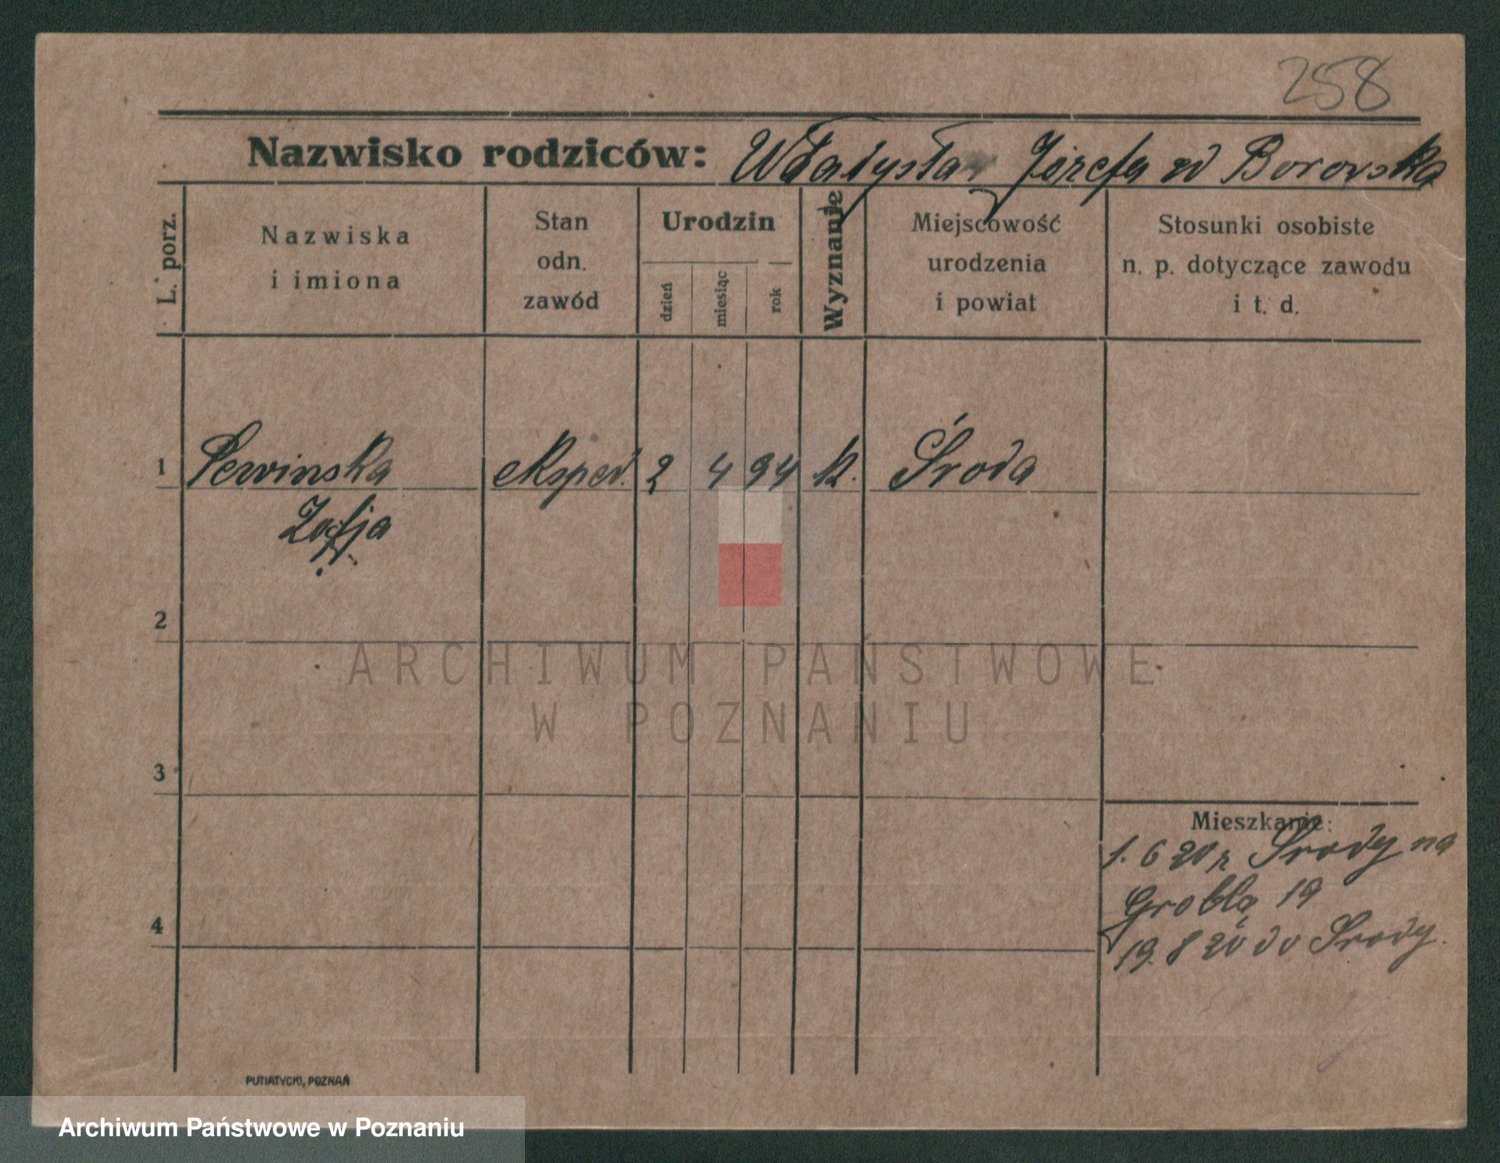 258
Nazwisko rodziców: Władysław Józefa zd Borowska
L. porz.
Nazwiska
i imiona
Stan
odn.
zawód
Urodzin
dzień
miesiąc
rok
Wyznanie
Miejscowość
urodzenia
i powiat
Stosunki osobiste
n. p. dotyczące zawodu
i t. d.
1 ekspeď. 2 4 94 k. Środa
Zofja
2
ARCHIWUM PAŃSTWOWE
W POZNANIU
3
Mieszkanie:
1. 6 20 z Środy na
Groblą 19
4
19. 8 20 do Środy.
PUTIATYCKI, POZNAŃ
Archiwum Państwowe w Poznaniu